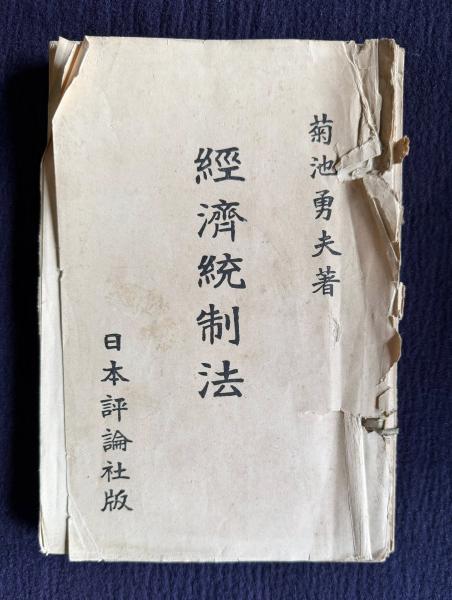 菊池勇夫著
經濟統制法
日本評論社版